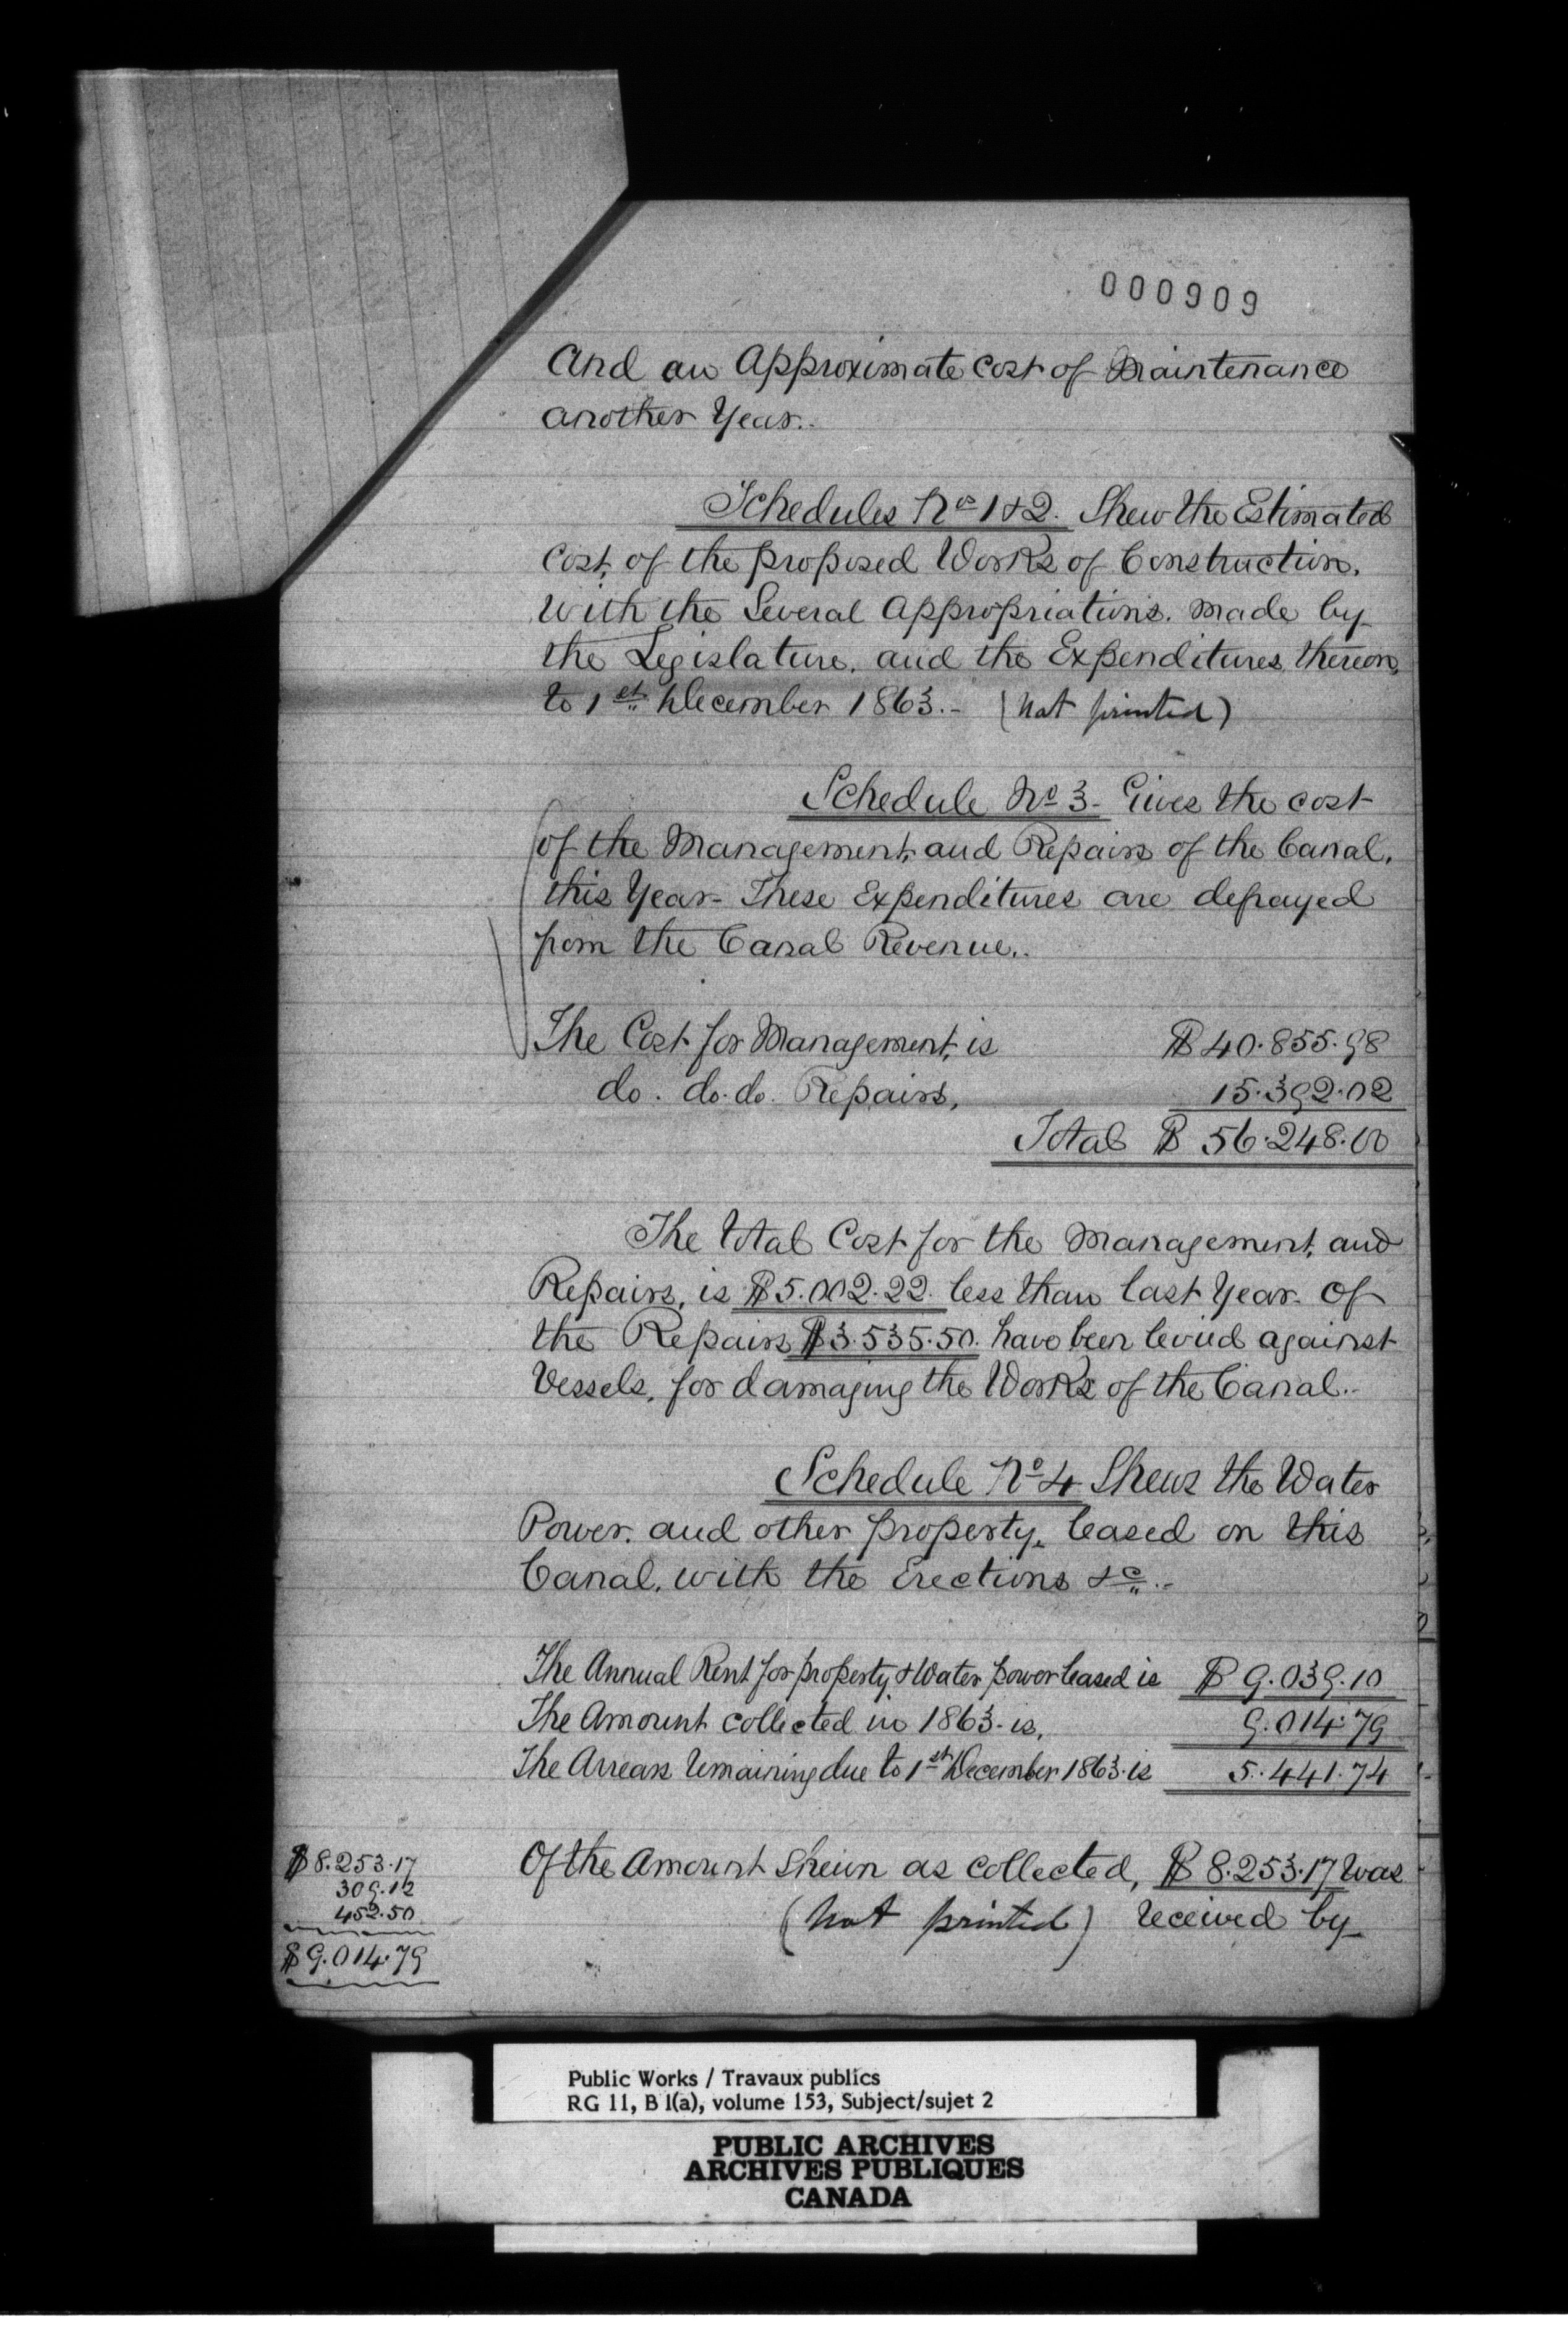 000909
And an Approximate cost of Maintenance
another Year..
Schedules Nos 1 & 2. Shew the Estimated
Cost, of the proposed Works of Construction,
with the Several Appropriations. made by
the Legislature. and the Expenditures thereon,
to 1st December 1863.- (not printed)
Schedule No 3- Gives the cost
of the Management, and Repairs of the Canal,
this Year- These Expenditures are defrayed
from the Canal Revenue..
The Cost for Management, is $ 40.855.98
do. do. do. Repairs, 15.392.02
Total $ 56.248.00
The total Cost for the Management, and
Repairs, is $5.002.22. less than last Year. Of
the Repairs $3.535.50. have been levied against
Vessels, for damaging the Works of the Canal.-
Schedule No 4 Shews the Water
Power. and other property, leased on this
Canal, with the Erections &c..-
The Annual Rent for property & Water power leased is $ 9.039.10
The Amount collected in 1863- is, 9.014.79
The Arrears remaining due to 1st December 1863. is 5.441.74
Of the Amount Shewn as collected, $ 8.253.17 was
(not printed) received by
$8.253.17
309.12
452.50
$9.014.79
Public Works / Travaux publics
RG 11, B 1(a), volume 153, Subject/sujet 2
PUBLIC ARCHIVES
ARCHIVES PUBLIQUES
CANADA